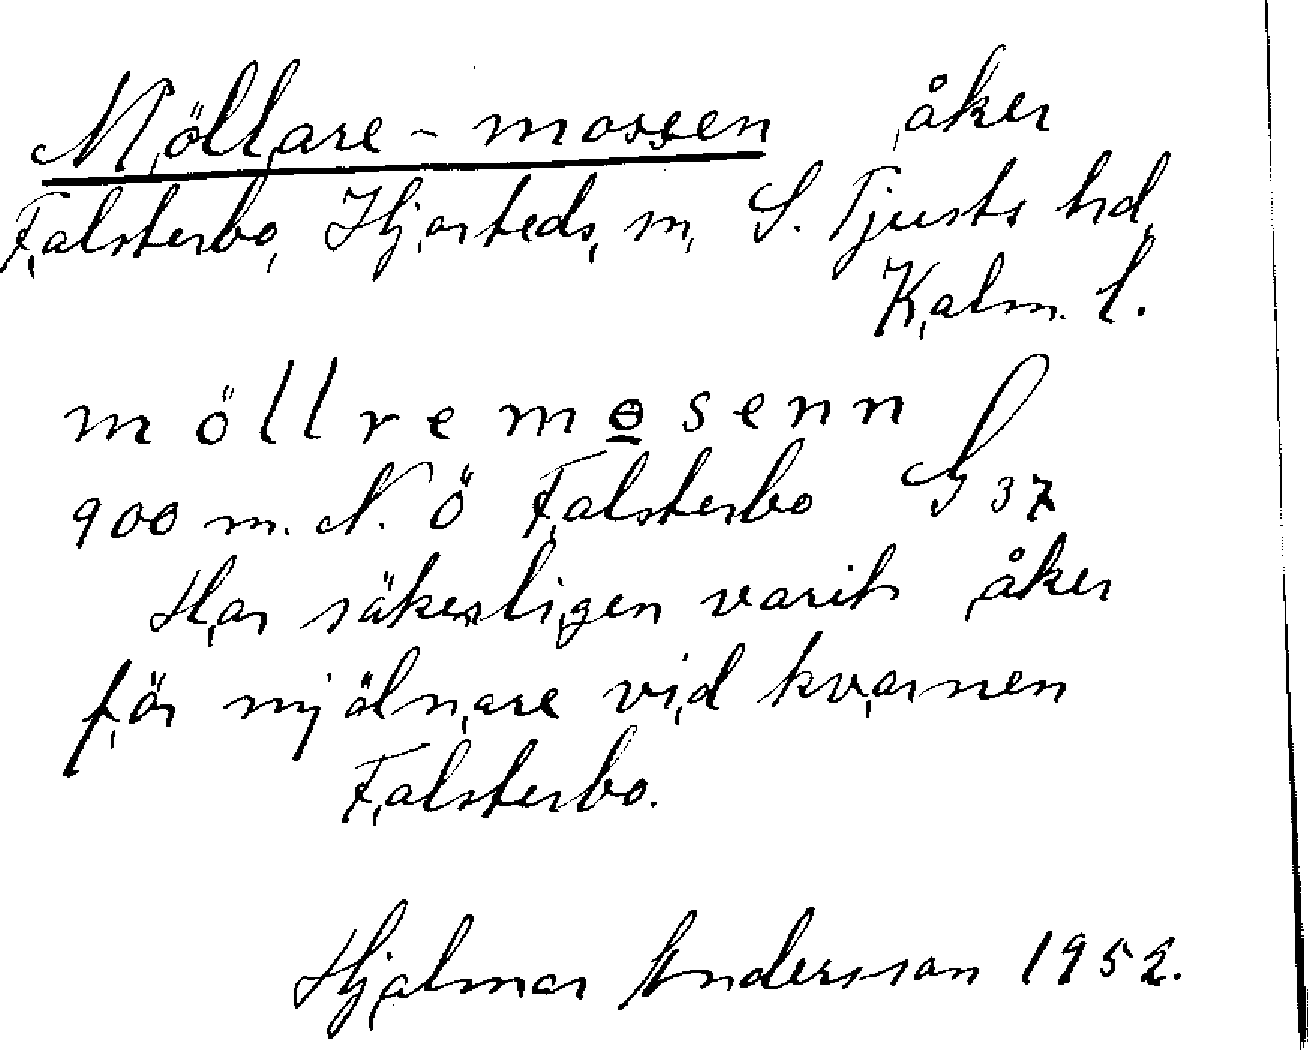 Möllare-mossen åker
Falsterbo, Hjorteds, m, S. Tjusts hd,
Kalm. l.
möllremɵsenn
900 m. N. Ö Falsterbo G 37
Har säkerligen varit åker
för mjölnare vid kvarnen
Falsterbo.
Hjalmar Andersson 1952.